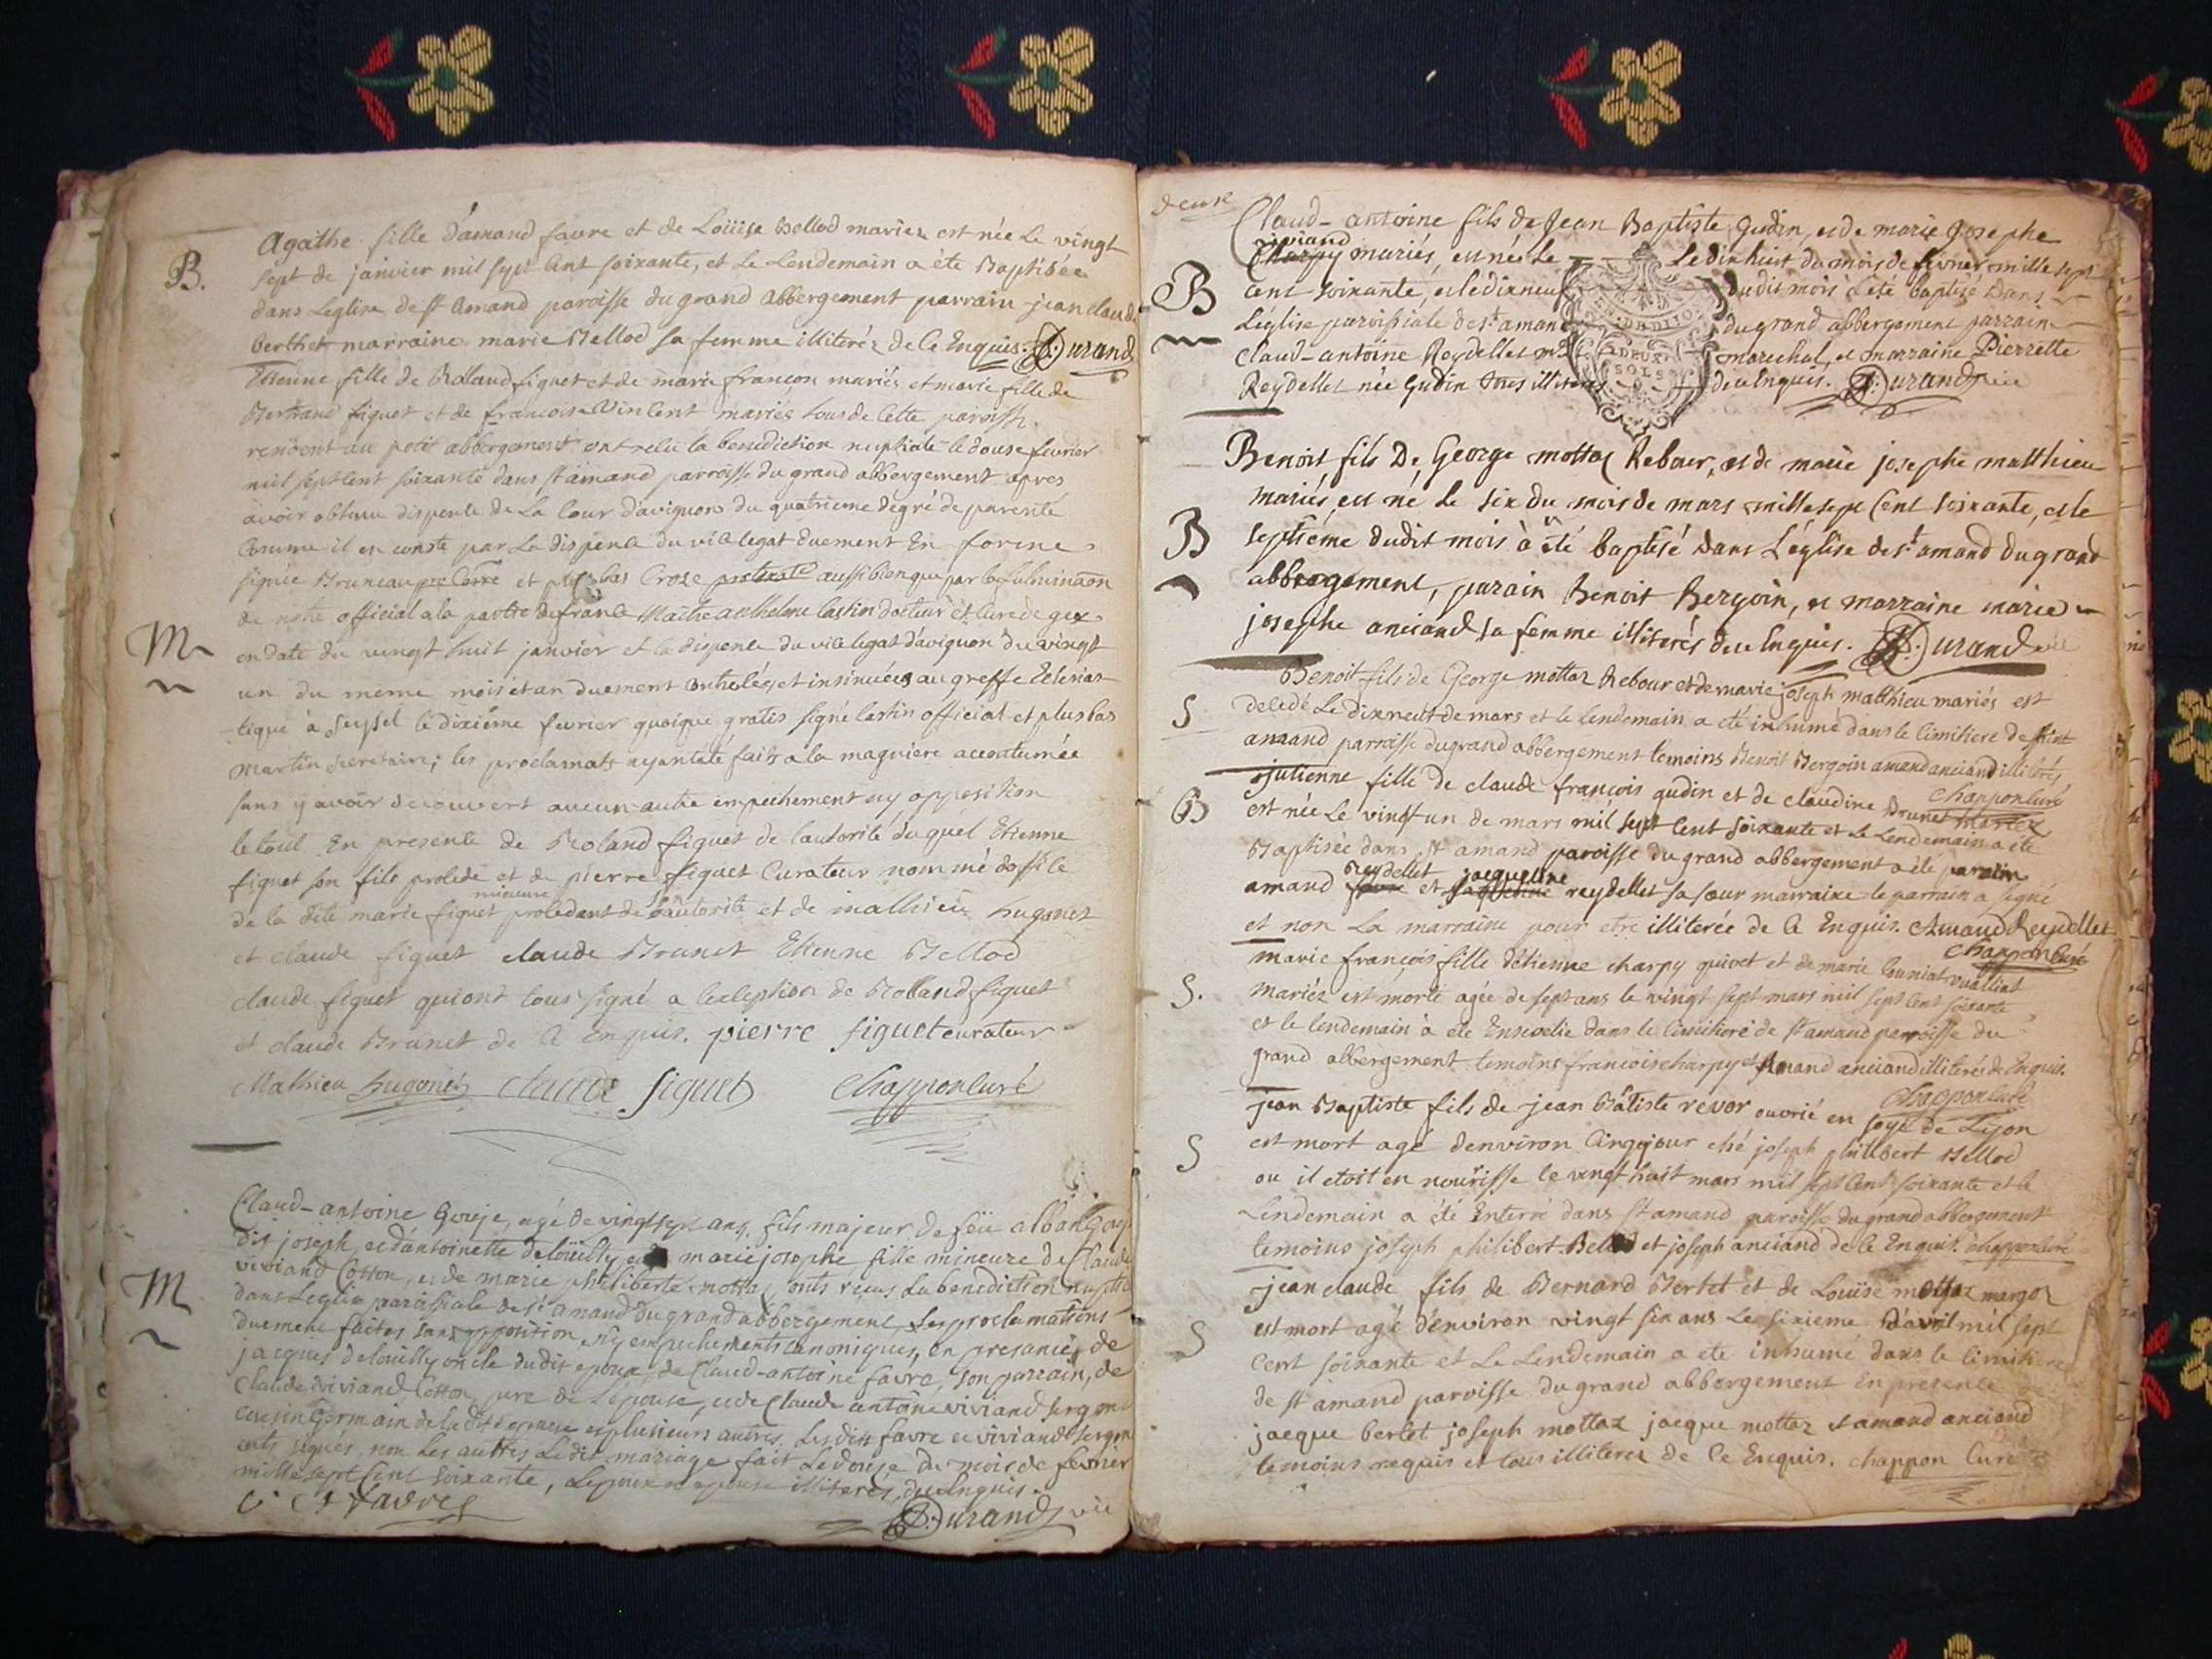 B.
Agathe fille d'amand favre et de Loüise Bellod mariez est née Le vingt
sept de janvier mil sept Cent soixante, et Le Lendemain a ete Baptisée
dans Leglise de st Amand paroisse du grand abbergement parrain jean claude
berthet marraine marie Bellod sa femme illiterez de Ce Enquis. Durand
Etienne fille de Roland figuet et de marie françon mariés et marie fille de
Bertrand figuet et de francoise Vincent mariés tous de Cette paroisse
au petit abbergement ont la benediction nuptiale le douse fevrier
mil sept Cent soixante dans st amand parroisse du grand abbergement apres
avoir obtenu dispense de La Cour davignon du quatrieme degré de parenté
Comme il en conste par La dispense du vice legat duement En forme
signée Bruneau et plus bas Croze aussi bien que par la fulminaon
de notre official a la partie de france Maitre anthelme Castin docteur et Curé de gex
M
en date du vingt huit janvier et la dispense du vice legat davignon du vingt
un du meme mois etan duement et insinuées au greffe Eclesias-
-tique à Seysel le dixiéme fevrier quoique gratis signé Castin official et plus bas
Martin secretaire; les proclamats ayant été faits a la magniere accoutumée
sans y avoir decouvert aucun autre empechement ny opposition
le tout En presence de Roland figuet de lautorité duquel Etienne
figuet son fils procede et de pierre figuet Curateur nommé doffice
de la dite marie figuet mineure procedant de son autorité et de mathieu hugonet
et claude figuet claude Brunet Etienne Bellod
claude figuet qui ont tous signé a lexception de Rolland figuet
et claude Brunet de Ce enquis. pierre figuet curateur
Mathieu hugonet claude figuet Chappon Curé
Claud-antoine Gouje, agé de vingt sept ans, fils majeur de feüe alban Gouje
dit joseph, et d'antoinette delouilly et marie josephe fille mineure de Claude
M
viviand Cotton, et de marie philiberte mottaz, onts reçus la benediction nupti
dans Leglise paroissiale de st amand du grand abbergement, Les proclamations
duement faites sans opposition ny empechements canoniques, en presance de
jacques delouilly oncle dudit epoux, de Claud-antoine favre, son parrain, de
Claude viviand Cotton pere de L'epouse, et de Claude antoine viviand
Cousin Germain de la ditte epouse et plusieurs autres. Lesdits favre et viviand
onts signés, non Les autres Ledit mariage fait Le douze du mois de fevrier
mille sept Cent soixante, Lepoux et epouse illiterés, de ce Enquis.
C. A favre
Durand vic
deuxe
Claud-antoine fils de Jean Baptiste Gudin, et de marie Josephe
B
anciand Charpy mariés, est né Le Le dix huit du mois de fevrier mille sept
cent soixante, et le dixneu dudit mois a été baptisé dans
L'église paroissiale de st amand du grand abbergement parrain
Claud-antoine Reydellet marechal, et marraine Pierrette
Reydellet née Gudin illiterés de ce Enquis. Durand vic
DEUX
SOLS
Benoit fils De George mottaz Rebour, et de marie josephe matthieu
mariés est né Le six du mois de mars mille sept Cent soixante, et le
B
septiéme dudit mois à été baptisé dans L'église de st amand du grand
abbergement, parain Benoit Bergoin, et marraine marie
josephe anciand sa femme illiterés de ce Enquis. Durand vic
Benoit fils de George mottaz Rebour et de marie joseph matthieu mariés est
S
decedé Le dixneuf de mars et le lendemain a eté inhumé dans le cimitiere de saint
amand parroisse du grand abbergement temoins Benoit Bergoin amand anciand illiterés
Chappon Curé
julienne fille de claude françois gudin et de claudine Brunet mariez
B
est née Le vingt un de mars mil sept Cent soixante et Le Lendemain a été
Baptisée dans st amand paroisse du grand abbergement a été parrain
amand reydellet et jacqueline reydellet sa sœur marraine le parrain a signé
et non La marraine pour etre illiterée de Ce Enquis. Amand Reydellet
Chappon Curé
marie françois fille d'etienne charpy quivet et de marie Cuniat vualliat
S.
mariéz est morte agée de sept ans le vingt sept mars mil sept Cent soixante
et le lendemain à ete Ensevelie dans le Cimitiere de st amand parroisse du
grand abbergement temoins francois charpy et Amand anciand illiterés de Enquis.
Chappon Curé
jean Baptiste fils de jean Batiste revor ouvrié en soye de Lyon
S
est mort agé denviron Cinq jour ché joseph philibert Bellod
ou il etoit en nourisse le vingt huit mars mil sept Cent soixante et le
Lendemain a été Enterré dans st amand paroisse du grand abbergement
temoins joseph philibert Bellod et joseph anciand de Ce Enquis. chappon Curé
jean claude fils de Bernard Bertet et de Louïse mottaz margoz
S
est mort agé d'environ vingt six ans Le sixieme d'avril mil sept
Cent soixante et Le Lendemain a ete inhumé dans le Cimitiere
de st amand paroisse du grand abbergement En presence
jacque bertet joseph mottaz jacque mottaz et amand anciand
temoins requis et tous illiterez de Ce Enquis. chappon Curé